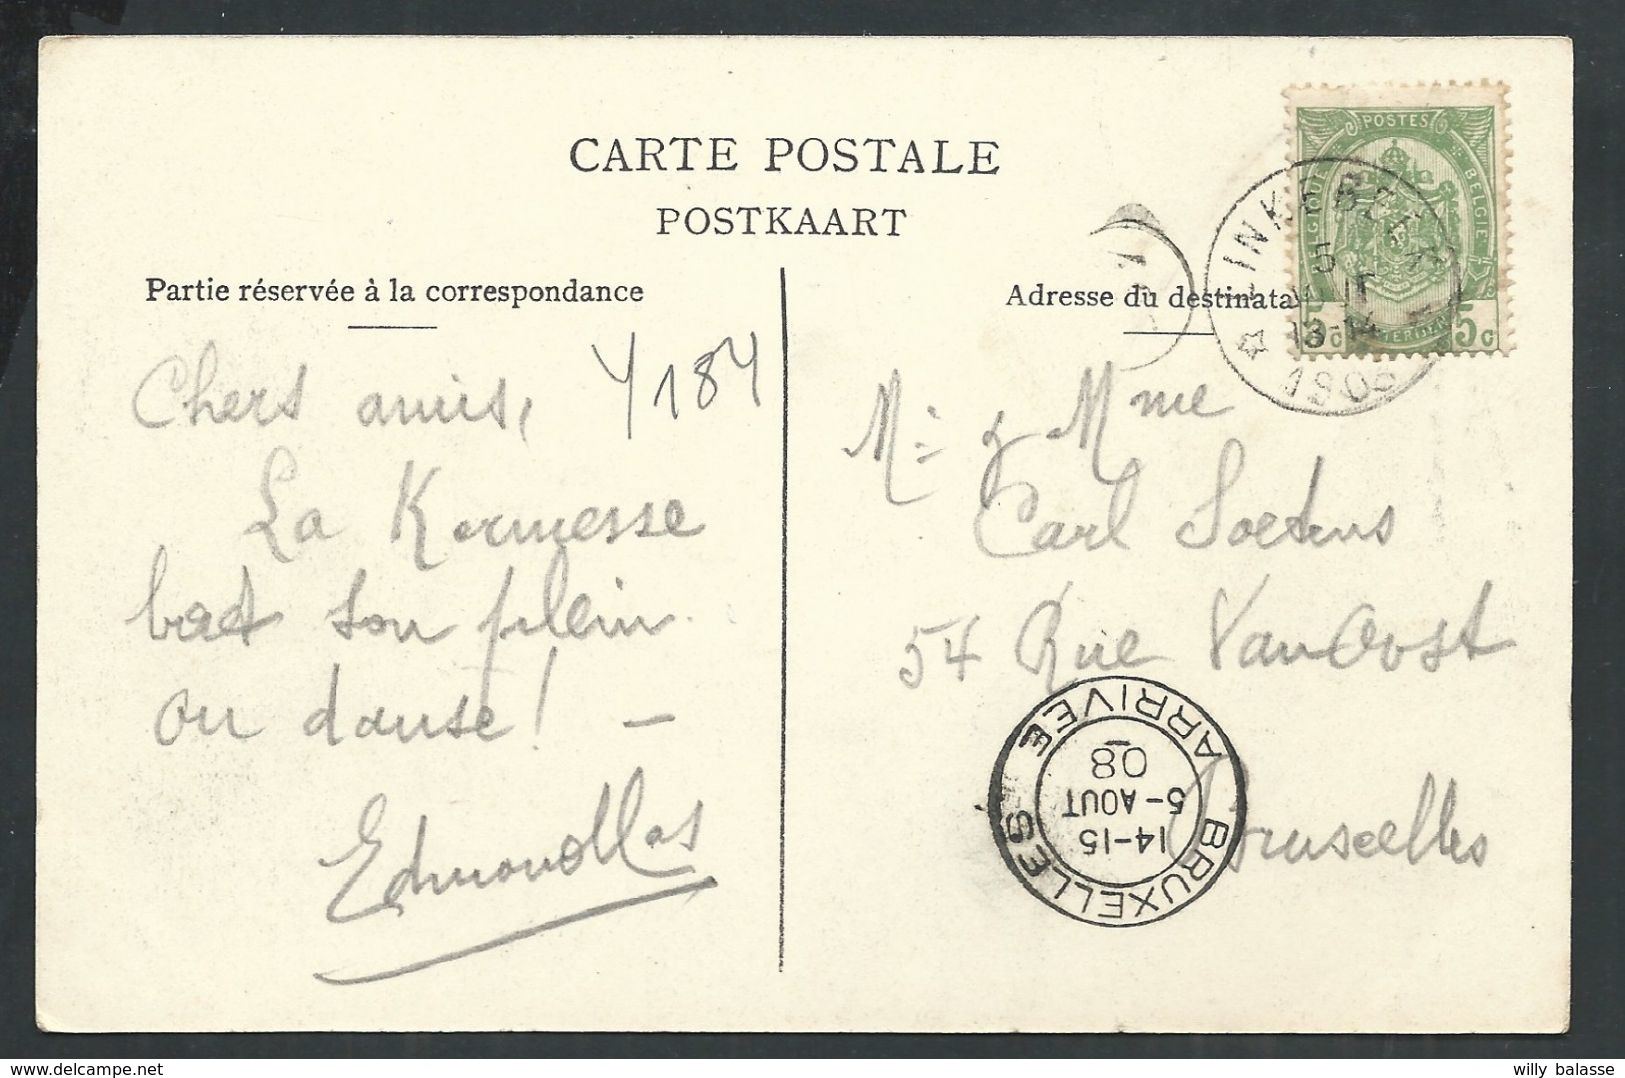 CARTE POSTALE
POSTKAART
Partie réservée à la correspondance
Chers amis,
Y184
La Kermesse
bat son plein
on danse! —
Adresse du destinata
Mr & Mme
Carl Soetens
54 Rue Van Oost
Bruxelles
POSTES
BELGIQUE
BELGIË
5c
5c
LINKEBEEK
5
13-14
BRUXELLES
14-15
5-AOUT
08
ARRIVEE
willy balasse